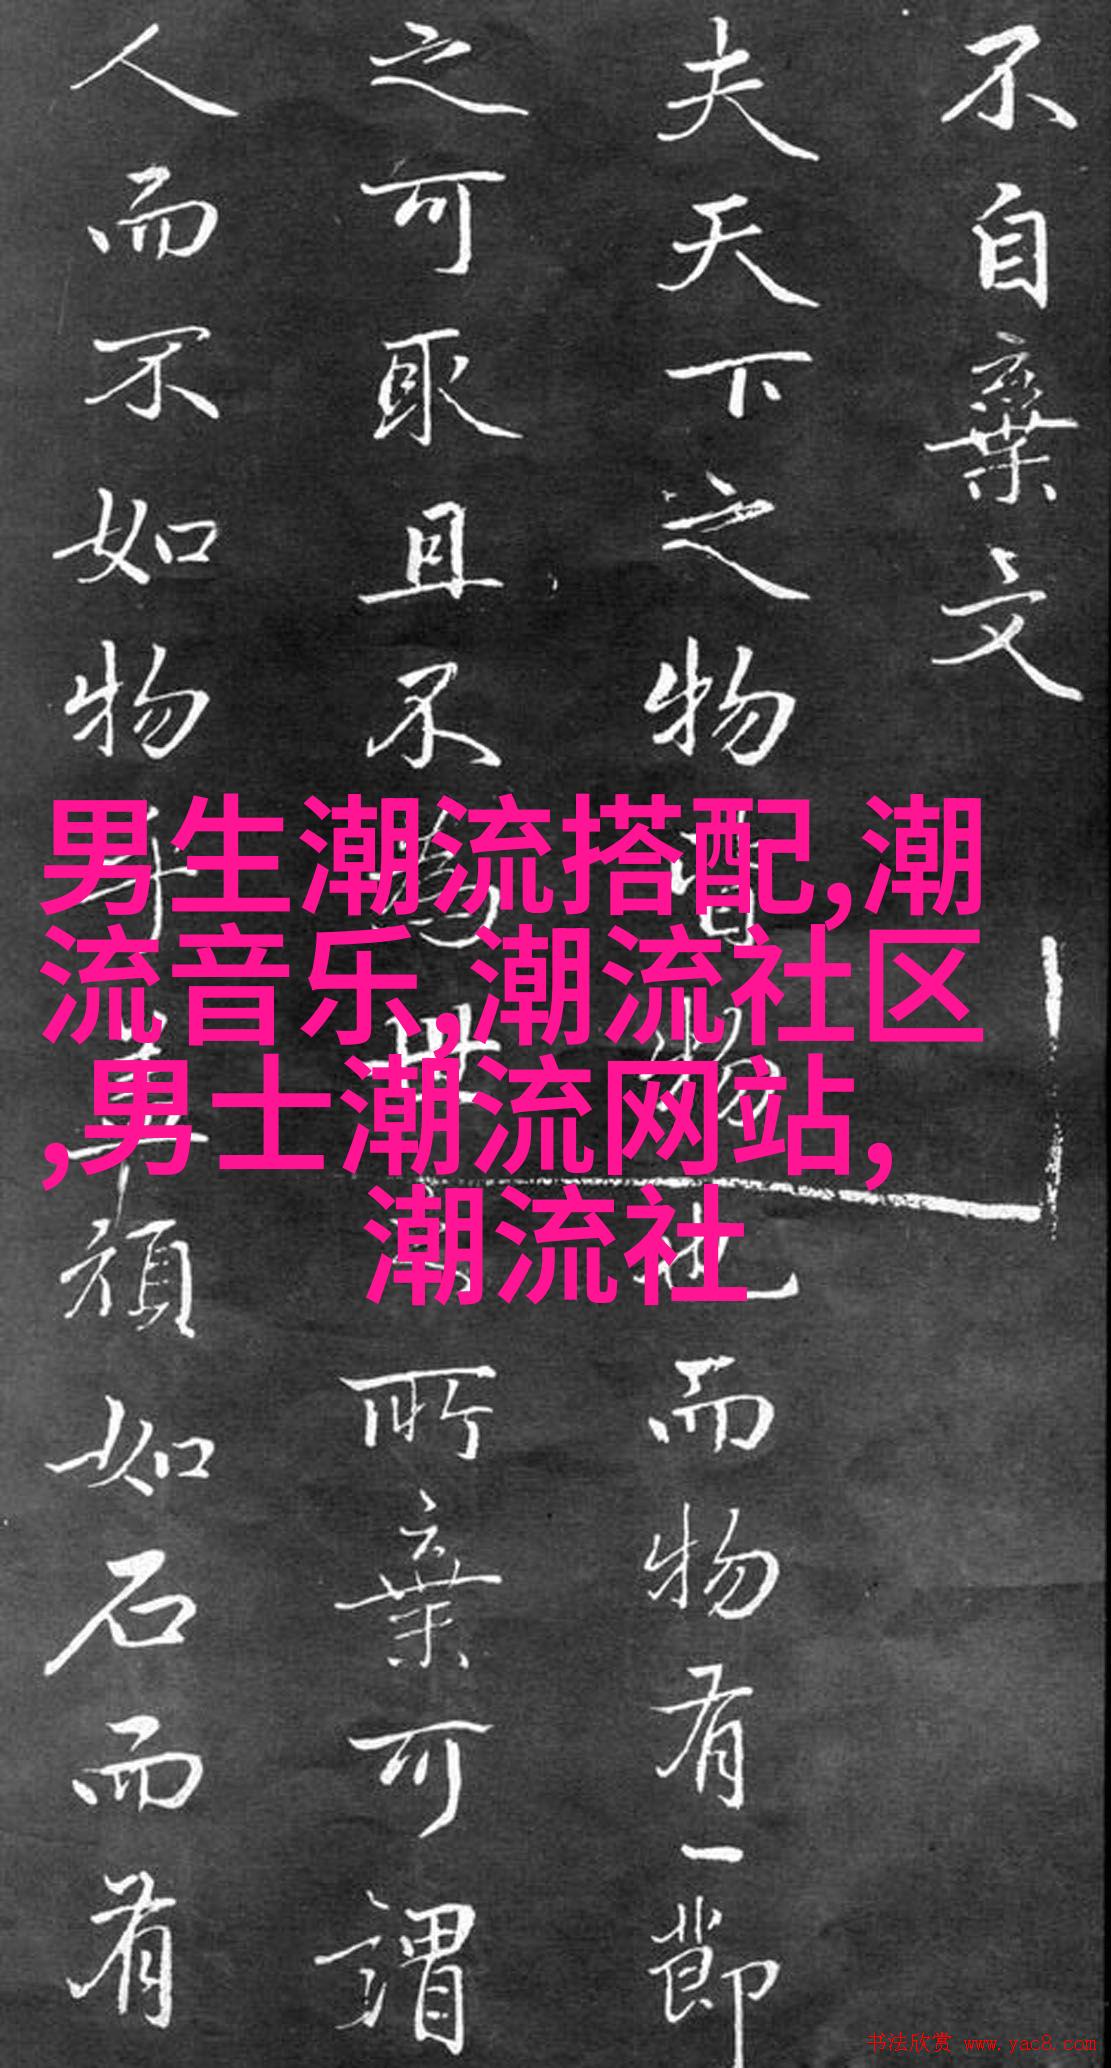 不自棄文
夫天下之物皆物也而物有一節
之可取且不為世所棄可謂
人而不如物乎頑如石而有
男生潮流搭配,潮
流音乐,潮流社区
,男士潮流网站,
潮流社
书法欣赏 www.yac8.com